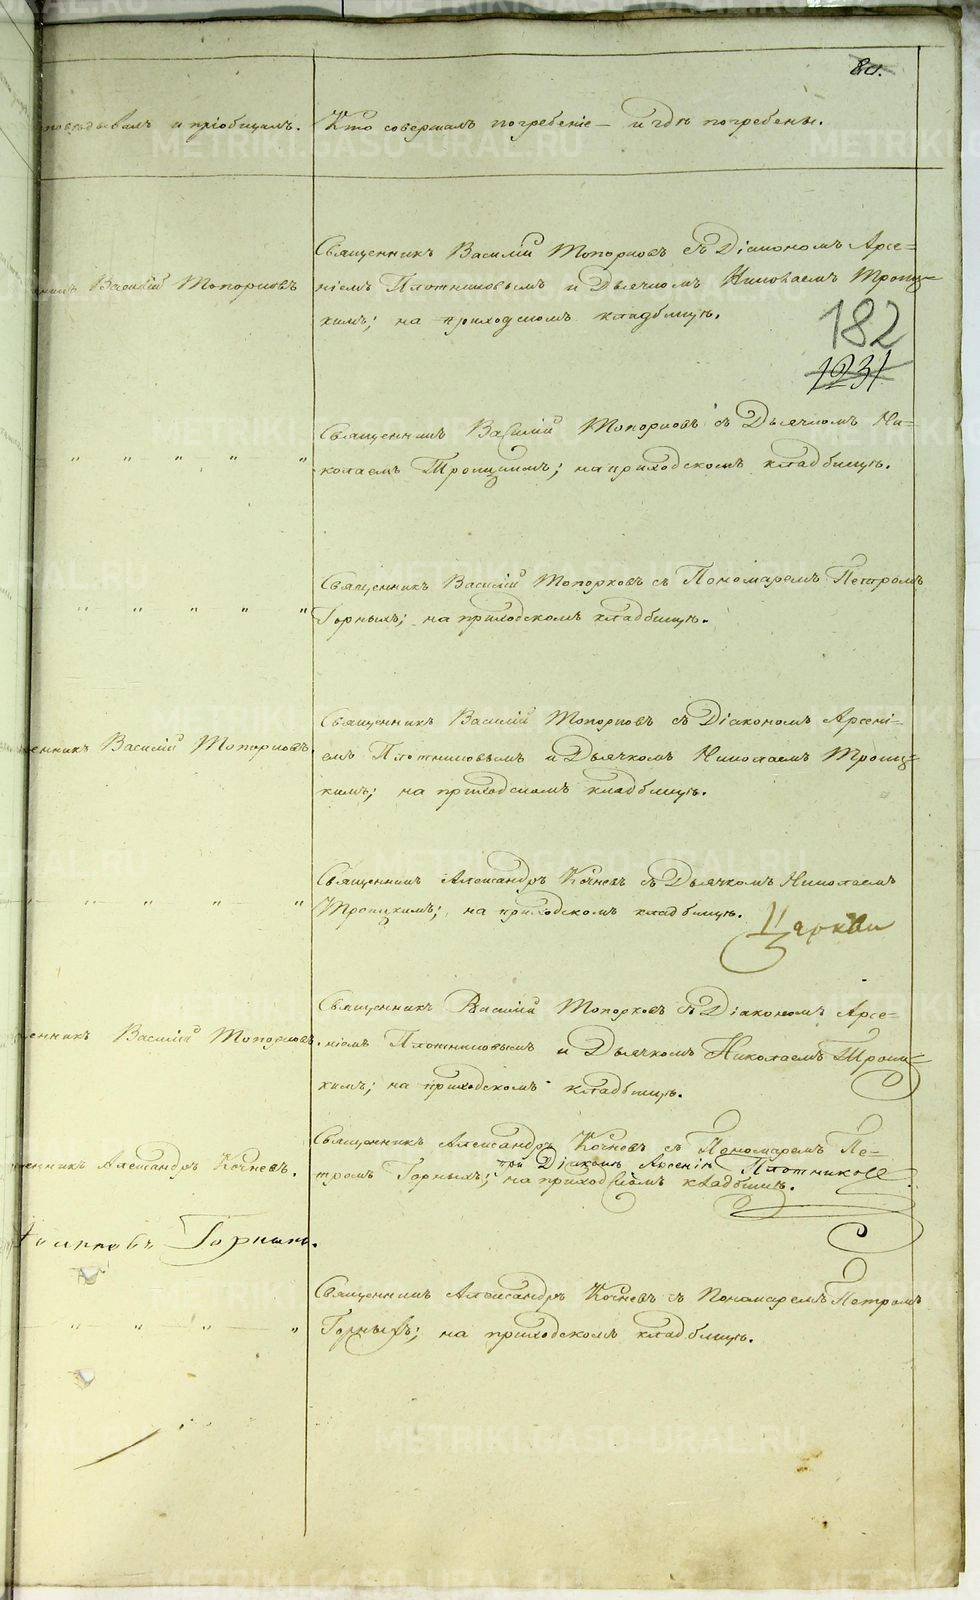 80.
исповѣдывалъ и пріобщалъ.
Кто совершалъ погребеніе и гдѣ погребены.
Священникъ Василій Топорковъ съ Діакономъ Арсе=
Василій Топорковъ
ніемъ Плотниковымъ и Дьячкомъ Николаемъ Троиц=
кимъ; на приходскомъ кладбищѣ.
182
1231
Священникъ Василій Топорковъ съ Дьячкомъ Ни=
" " " " "
колаемъ Троицкимъ; на приходскомъ кладбищѣ.
Священникъ Василій Топорковъ съ Пономаремъ Петромъ
" " " " "
Горныхъ; на приходскомъ кладбищѣ.
Священникъ Василій Топорковъ съ Діакономъ Арсені=
енникъ Василій Топорковъ
емъ Плотниковымъ и Дьячкомъ Николаемъ Троиц=
кимъ; на приходскомъ кладбищѣ.
Священникъ Александръ Кочневъ съ Дьячкомъ Николаемъ
" " " " "
Троицкимъ; на приходскомъ кладбищѣ.
Церкви
Священникъ Василій Топорковъ съ Діакономъ Арсе=
енникъ Василій Топорковъ
ніемъ Плотниковымъ и Дьячкомъ Николаемъ Троиц=
кимъ; на приходскомъ кладбищѣ.
Священникъ Александръ Кочневъ съ Пономаремъ Пе=
енникъ Александръ Кочневъ.
при Діаконъ Арсеній Плотниковъ
тромъ Горныхъ; на приходскомъ кладбищѣ.
Горныхъ.
Священникъ Александръ Кочневъ съ Пономаремъ Петромъ
" " " "
Горныхъ; на приходскомъ кладбищѣ.
METRIKI.GASO-URAL.RU